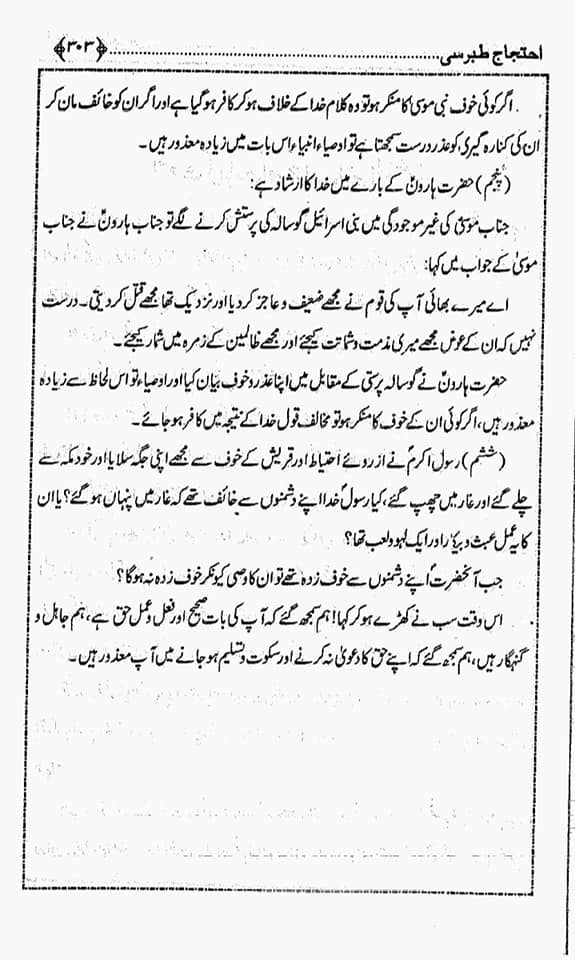 احتجاج طبرسی ........ ﴿۳۰۳﴾
اگر کوئی خوف نبی موسیٰؑ کا منکر ہو تو وہ کلام خدا کے خلاف ہو کر کافر ہو گیا ہے اور اگر ان کو خائف مان کر
ان کی کنارہ گیری کو عذر درست سمجھتا ہے تو اوصیاء انبیاء اس بات میں زیادہ معذور ہیں۔
(پنجم) حضرت ہارونؑ کے بارے میں خدا کا ارشاد ہے:
جناب موسیٰؑ کی غیر موجودگی میں بنی اسرائیل گوسالہ کی پرستش کرنے لگے تو جناب ہارونؑ نے جناب
موسیٰؑ کے جواب میں کہا:
اے میرے بھائی آپ کی قوم نے مجھے ضعیف و عاجز کر دیا اور نزدیک تھا مجھے قتل کر دیتی۔ درست
نہیں کہ ان کے عوض مجھے میری مذمت و شماتت کیجئے اور مجھے ظالمین کے زمرہ میں شمار کیجئے۔
حضرت ہارونؑ نے گوسالہ پرستی کے مقابل میں اپنا عذر و خوف بیان کیا اور اوصیاء تو اس لحاظ سے زیادہ
معذور ہیں، اگر کوئی ان کے خوف کا منکر ہو تو مخالف قول خدا کے نتیجہ میں کافر ہو جائے۔
(ششم) رسول اکرمؐ نے از روئے احتیاط اور قریش کے خوف سے مجھے اپنی جگہ سلایا اور خود مکہ سے
چلے گئے اور غار میں چھپ گئے، کیا رسولؐ خدا اپنے دشمنوں سے خائف تھے کہ غار میں پنہاں ہو گئے؟ یا ان
کا یہ عمل عبث و بیکار اور ایک لہو و لعب تھا؟
جب آنحضرتؐ اپنے دشمنوں سے خوف زدہ تھے تو ان کا وصی کیونکر خوف زدہ نہ ہوگا؟
اس وقت سب نے کھڑے ہو کر کہا! ہم سمجھ گئے کہ آپ کی بات صحیح اور فعل و عمل حق ہے، ہم جاہل و
گنہگار ہیں، ہم سمجھ گئے کہ اپنے حق کا دعویٰ نہ کرنے اور سکوت و تسلیم ہو جانے میں آپ معذور ہیں۔